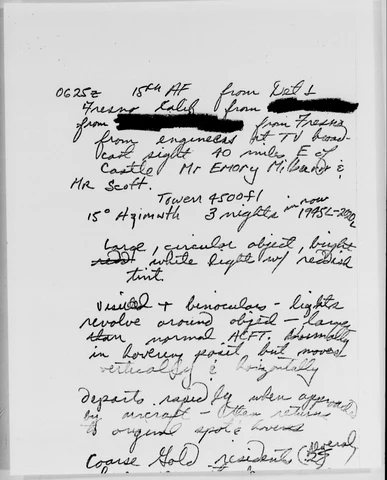 0625z 15th AF from Det 1
Fresno Calif from
from from Fresno
from engineers at TV broad-
cast sight 40 miles E of
Castle Mr Emory &
Mr Scott.
Tower 4500ft
15° Azimuth 3 nights in now
Large, circular object, bright
white light w/ reddish
tint.
Visual + binoculars - lights
revolve around object - larger
than normal ACFT. Normally
in hovering posit but moves
vertically & horizontally
departs rapidly when approached
by aircraft - often returns
to original spot & hovers
Coarse Gold residents (